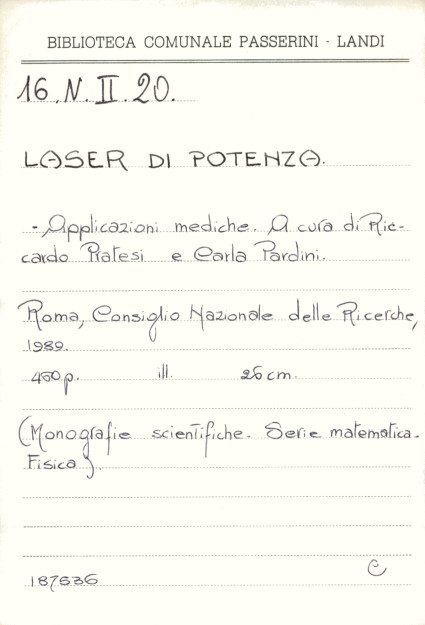 BIBLIOTECA COMUNALE PASSERINI - LANDI
16.N.II.20.
LASER DI POTENZA.
- Applicazioni mediche. A cura di Ric-
cardo Pratesi e Carla Pardini.
Roma, Consiglio Nazionale delle Ricerche,
1989.
450 p. ill. 26 cm.
(Monografie scientifiche. Serie matematica.
Fisica).
187536
C